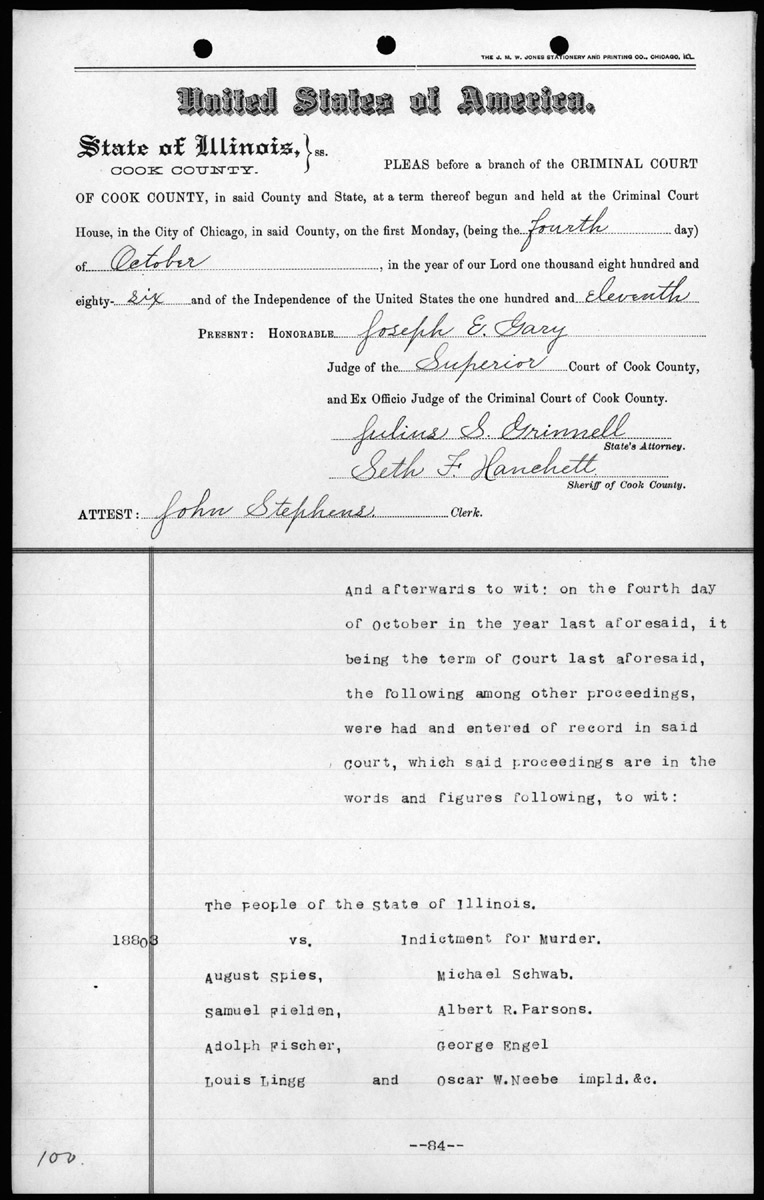 THE J. M. W. JONES STATIONERY AND PRINTING CO., CHICAGO, ILL.
United States of America.
State of Illinois, } ss.
COOK COUNTY.
PLEAS before a branch of the CRIMINAL COURT
OF COOK COUNTY, in said County and State, at a term thereof begun and held at the Criminal Court
House, in the City of Chicago, in said County, on the first Monday, (being the fourth day)
of October, in the year of our Lord one thousand eight hundred and
eighty- six and of the Independence of the United States the one hundred and eleventh
PRESENT: HONORABLE Joseph E. Gary
Judge of the Superior Court of Cook County,
and Ex Officio Judge of the Criminal Court of Cook County.
Julius S. Grinnell
State's Attorney.
Seth F. Hanchett
Sheriff of Cook County.
ATTEST: John Stephens. Clerk.
And afterwards to wit: on the fourth day
of October in the year last aforesaid, it
being the term of Court last aforesaid,
the following among other proceedings,
were had and entered of record in said
Court, which said proceedings are in the
words and figures following, to wit:
The People of the State of Illinois.
18803 vs. Indictment for Murder.
August Spies, Michael Schwab.
Samuel Fielden, Albert R. Parsons.
Adolph Fischer, George Engel
Louis Lingg and Oscar W. Neebe impld. &c.
--84--
100.